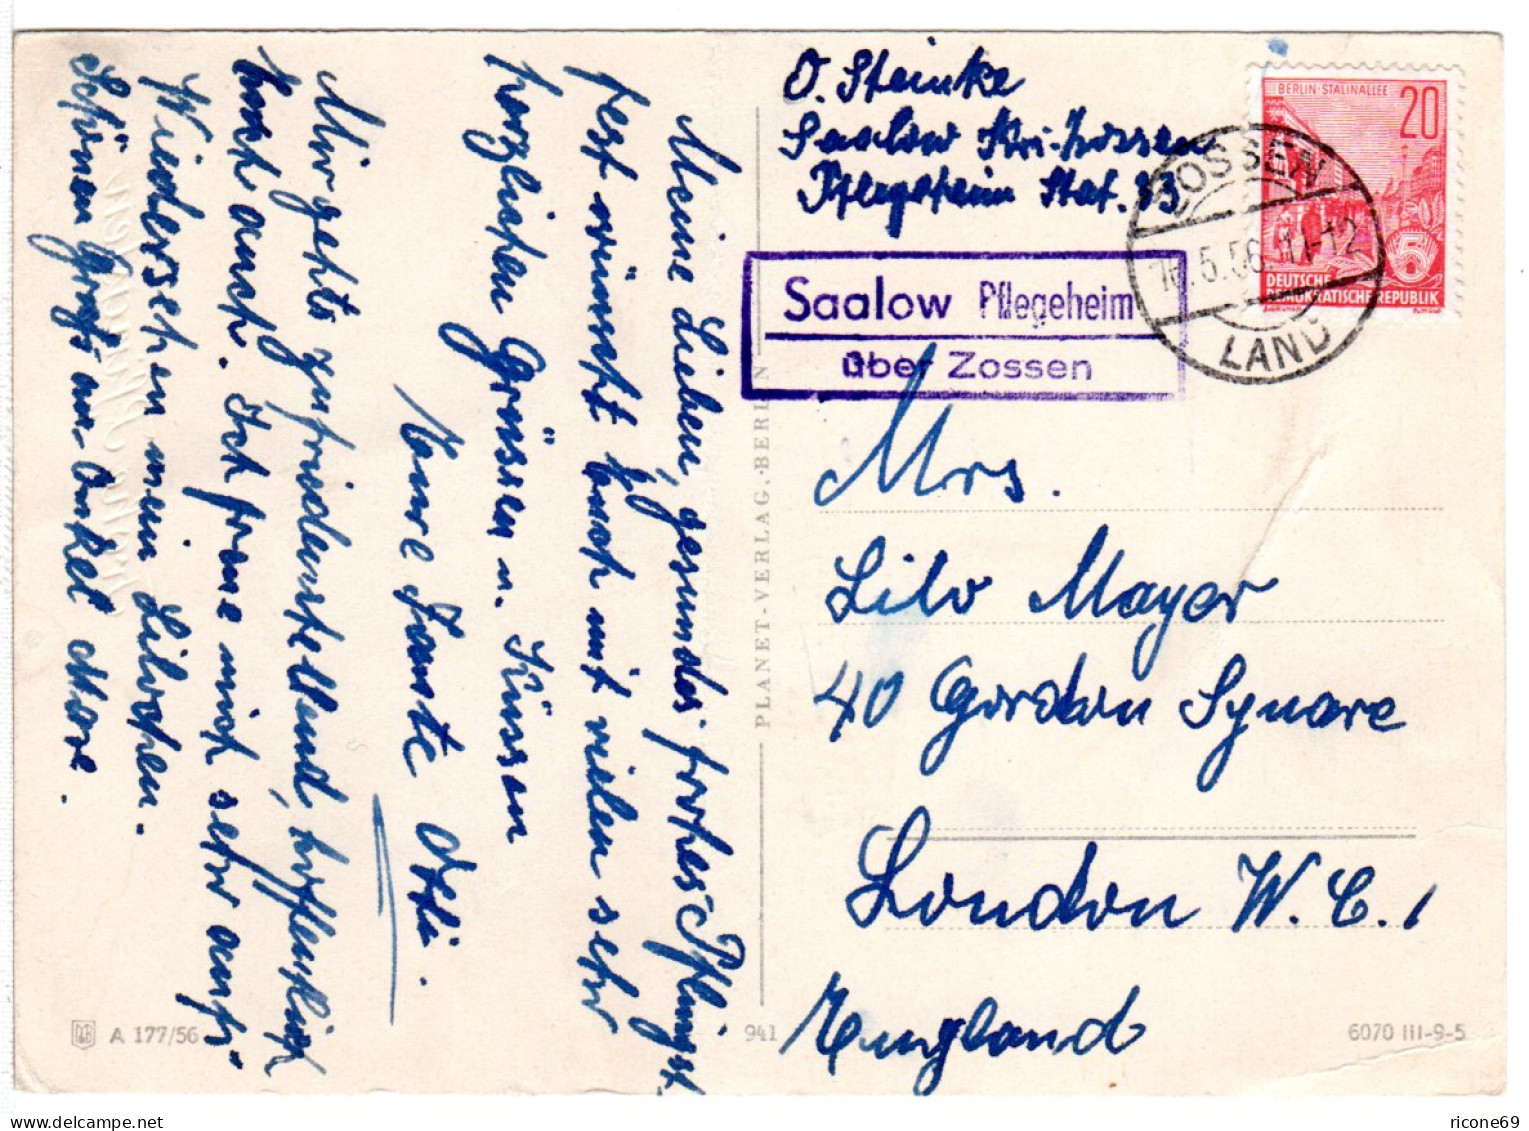 O. Steinke
Saalow Kr. Zossen
Pflegeheim Stat. B3
BERLIN-STALINALLEE
20
DEUTSCHE
DEMOKRATISCHE REPUBLIK
5
ZOSSEN
5.56.11-12
LAND
Saalow Pflegeheim
über Zossen
Mrs.
Lilo Mayer
40 Gordon Square
London W.C.1
England
Meine Lieben, gesundes frohes Pfingst-
fest wünscht Euch mit vielen sehr
herzlichen Grüssen u. Küssen
Eure Tante Otti.
Mir gehts zufriedenstellend, hoffentlich
Euch auch. Ich freue mich sehr aufs
Wiedersehen mein Lilochen.
Schönen Gruß an Onkel More.
PLANET-VERLAG, BERLIN
A 177/56
941
6070 III-9-5
ricone69